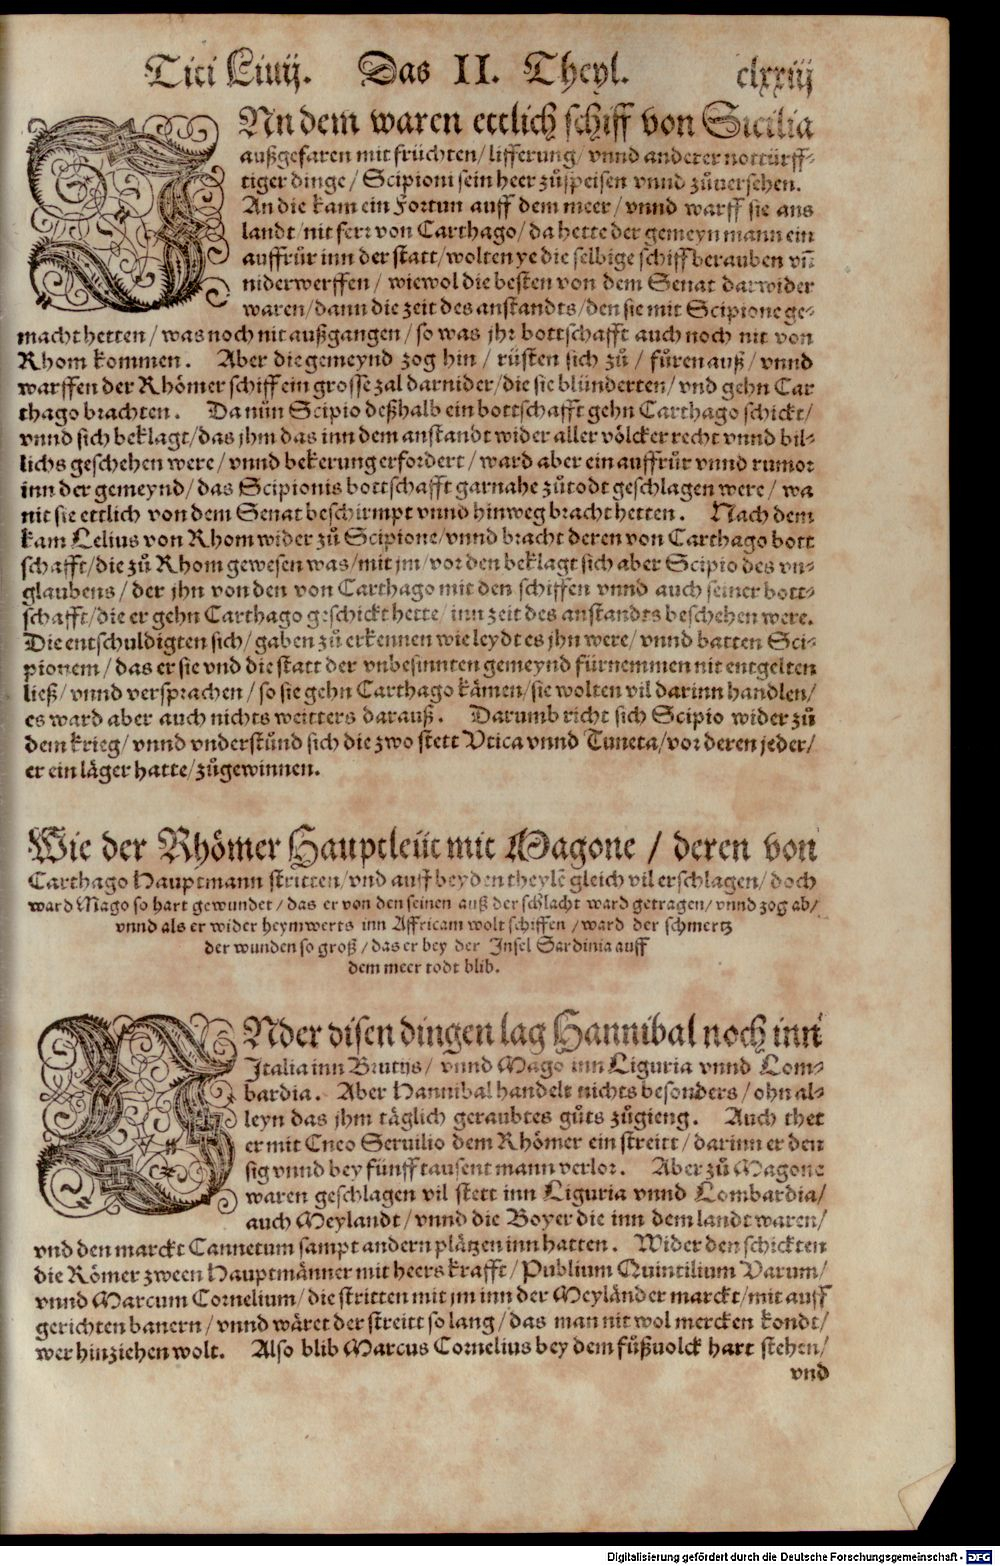 Titi Liuij. Das II. Theyl. clxxiij
INn dem waren ettlich schiff von Sicilia
außgefaren mit früchten/ lifferung/ vnnd anderer nottürff⸗
tiger dinge/ Scipioni sein heer zůspeisen vnnd zůuersehen.
An die kam ein Fortun auff dem meer/ vnnd warff sie ans
landt/ nit ferr von Carthago/ da hette der gemeyn mann ein
auffrůr inn der statt/ wolten ye die selbige schiff berauben vñ
niderwerffen/ wiewol die besten von dem Senat darwider
waren/ dann die zeit des anstandts/ den sie mit Scipione ge⸗
macht hetten/ was noch nit außgangen/ so was jhr bottschafft auch noch nit von
Rhom kommen. Aber die gemeynd zog hin/ rüsten sich zů/ fůren auß/ vnnd
warffen der Rhömer schiff ein grosse zal darnider/ die sie blünderten/ vnd gehn Car
thago brachten. Da nůn Scipio deßhalb ein bottschafft gehn Carthago schickt/
vnnd sich beklagt/ das jhm das inn dem anstandt wider aller völcker recht vnnd bil⸗
lichs geschehen were/ vnnd bekerung erfordert/ ward aber ein auffrůr vnnd rumor
inn der gemeynd/ das Scipionis bottschafft garnahe zůtodt geschlagen were/ wa
nit sie ettlich von dem Senat beschirmpt vnnd hinweg bracht hetten. Nach dem
kam Lelius von Rhom wider zů Scipione/ vnnd bracht deren von Carthago bott
schafft/ die zů Rhom gewesen was/ mit jm/ vor den beklagt sich aber Scipio des vn⸗
glaubens/ der jhn von den von Carthago mit den schiffen vnnd auch seiner bott⸗
schafft/ die er gehn Carthago geschickt hette/ inn zeit des anstandts beschehen were.
Die entschuldigten sich/ gaben zů erkennen wie leydt es jhn were/ vnnd batten Sci⸗
pionem/ das er sie vnd die statt der vnbesinnten gemeynd fürnemmen nit entgelten
ließ/ vnnd versprachen/ so sie gehn Carthago kämen/ sie wolten vil darinn handlen/
es ward aber auch nichts weitters darauß. Darumb richt sich Scipio wider zů
dem krieg/ vnnd vnderstůnd sich die zwo stett Vtica vnnd Tuneta/ vor deren jeder/
er ein läger hatte/ zůgewinnen.
Wie der Rhömer Hauptleüt mit Magone / deren von
Carthago Hauptmann stritten/ vnd auff beyden theylẽ gleich vil erschlagen/ doch
ward Mago so hart gewundet/ das er von den seinen auß der schlacht ward getragen/ vnnd zog ab/
vnnd als er wider heymwerts inn Affricam wolt schiffen/ ward der schmertz
der wunden so groß/ das er bey der Insel Sardinia auff
dem meer todt blib.
VNder disen dingen lag Hannibal noch inn
Italia inn Brutijs/ vnnd Mago inn Liguria vnnd Lom⸗
bardia. Aber Hannibal handelt nichts besonders/ ohn al⸗
leyn das jhm täglich geraubtes gůts zůgieng. Auch thet
er mit Cneo Seruilio dem Rhömer ein streitt/ darinn er den
sig vnnd bey fünff tausent mann verlor. Aber zů Magone
waren geschlagen vil stett inn Liguria vnnd Lombardia/
auch Meylandt/ vnnd die Boyer die inn dem landt waren/
vnd den marckt Cannetum sampt andern plätzen inn hatten. Wider den schickten
die Römer zween Hauptmänner mit heers krafft/ Publium Quintilium Varum/
vnnd Marcum Cornelium/ die stritten mit jm inn der Meyländer marckt/ mit auff
gerichten banern/ vnnd wäret der streitt so lang/ das man nit wol mercken kondt/
wer hinziehen wolt. Also blib Marcus Cornelius bey dem fůßuolck hart stehen/
vnd
Digitalisierung gefördert durch die Deutsche Forschungsgemeinschaft - DFG